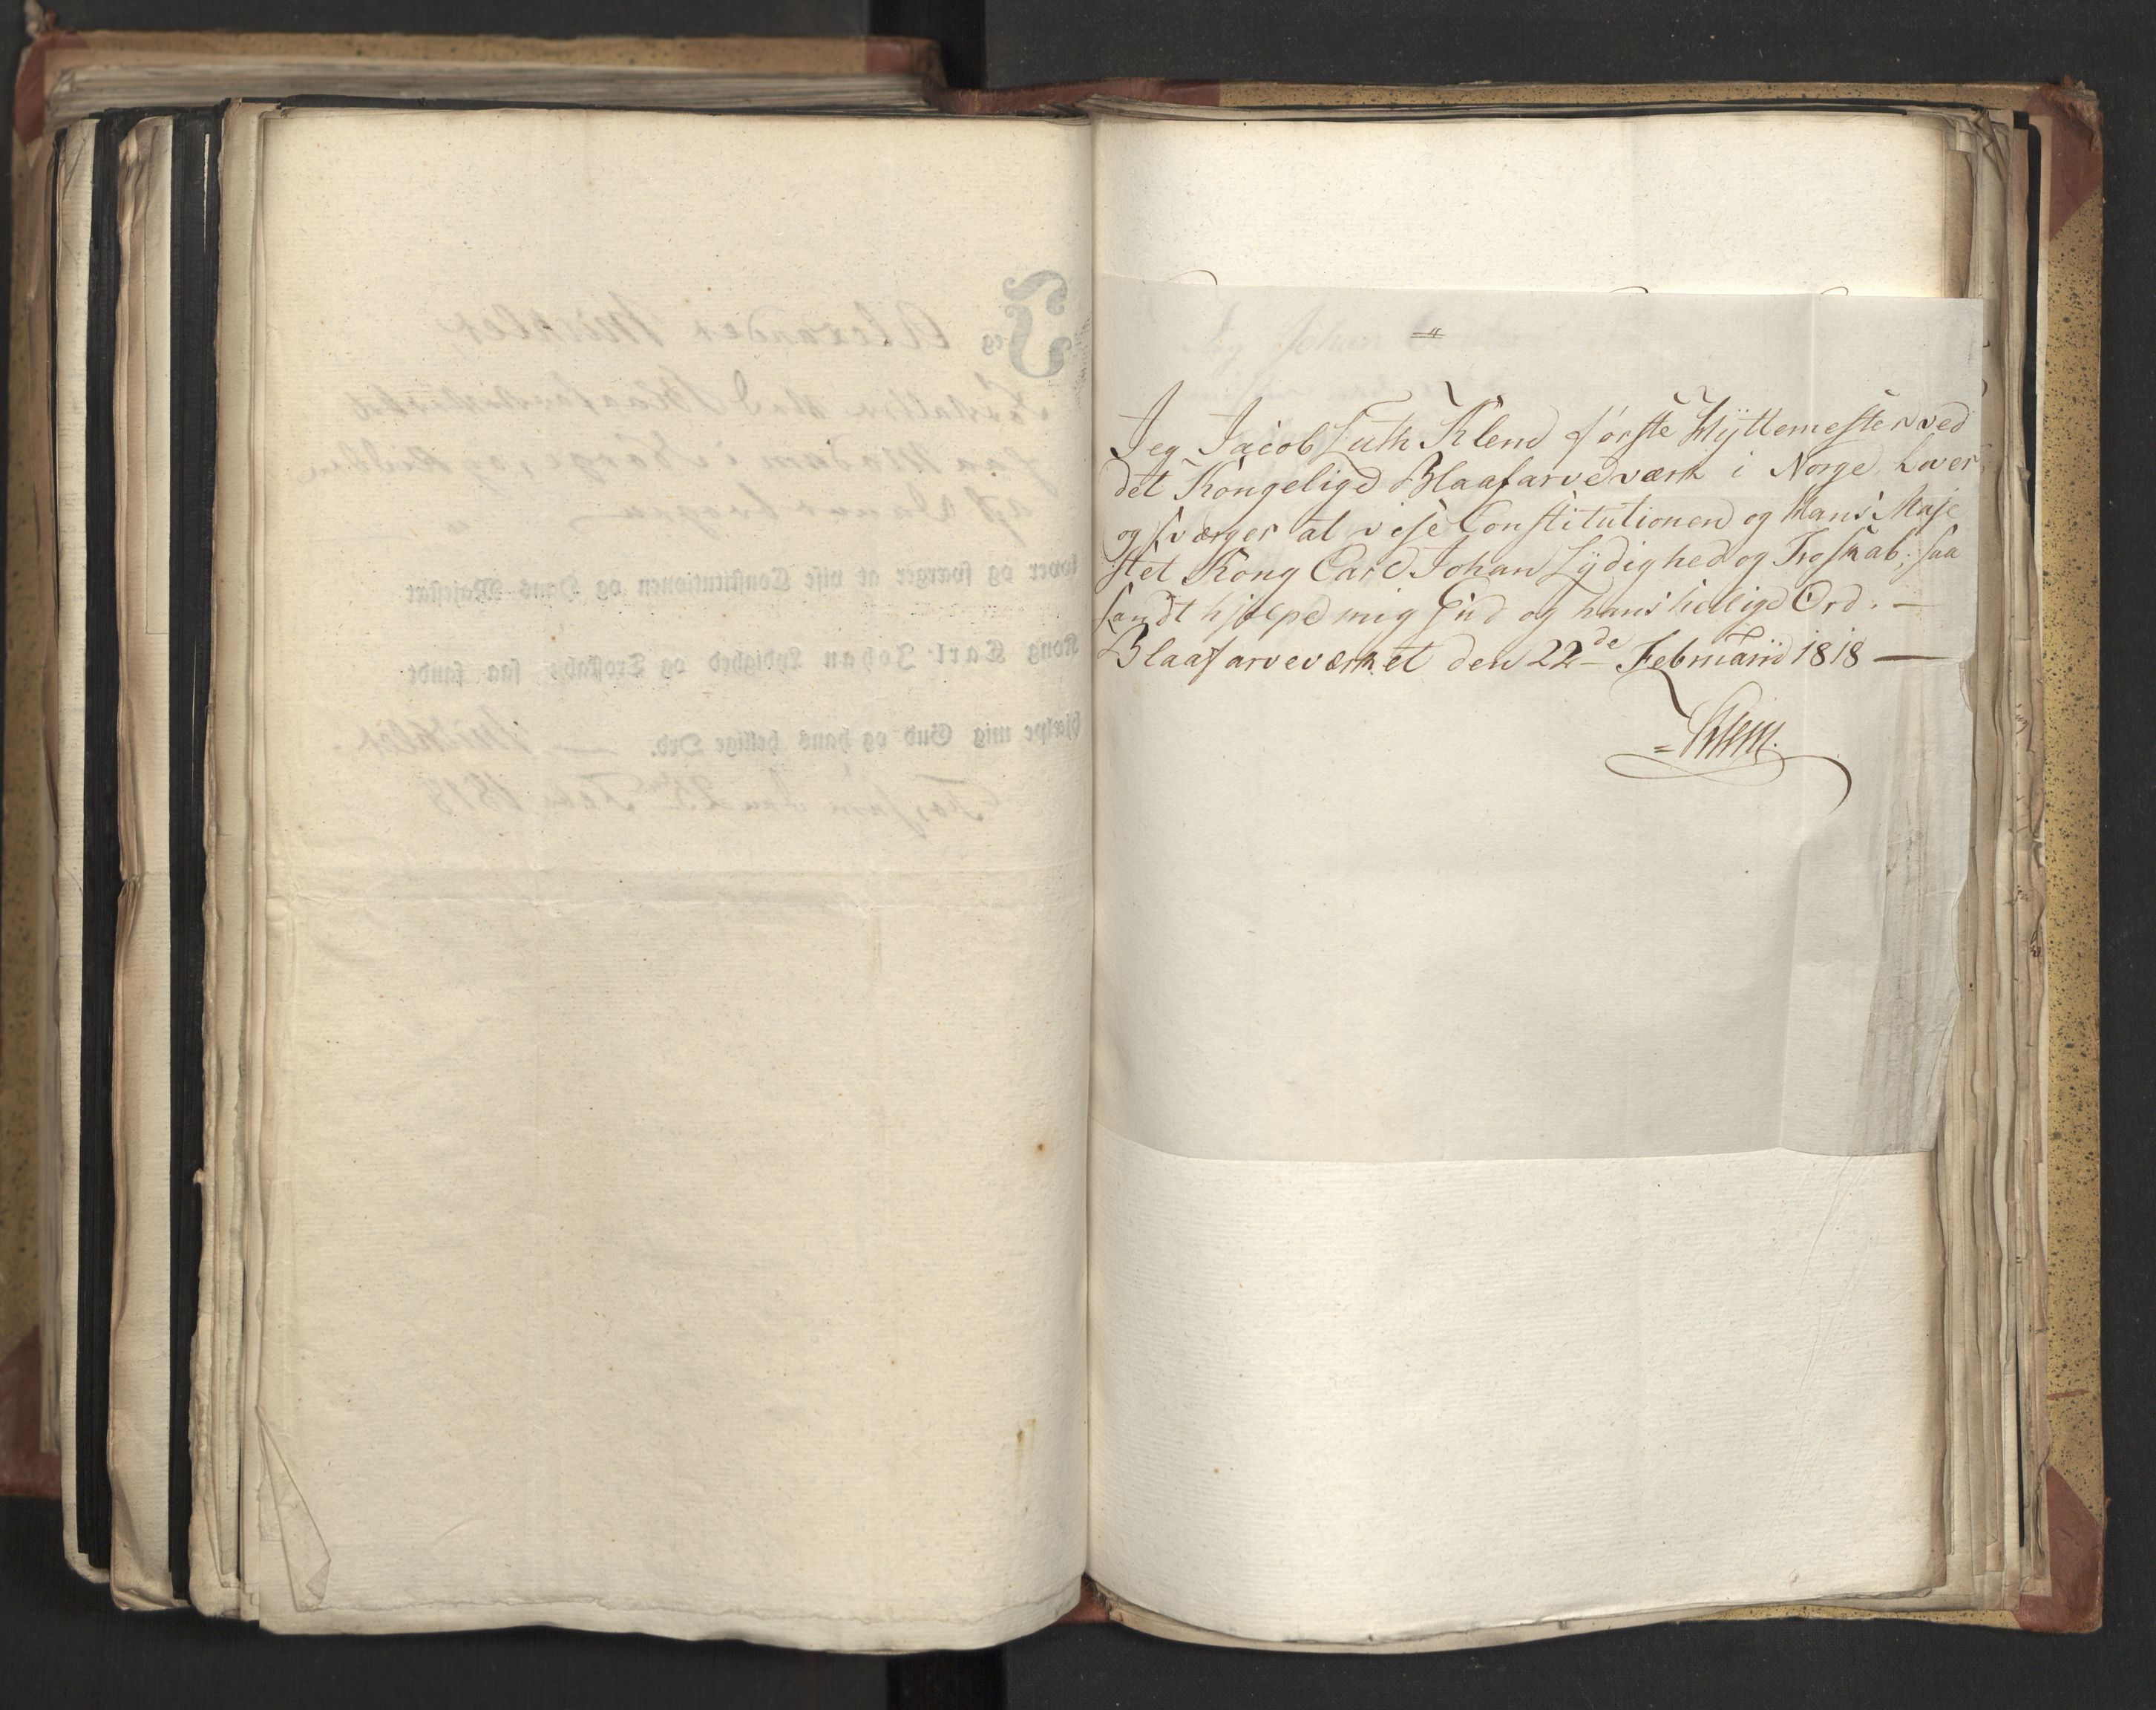 Jeg Jacob Luth Klem förste Hÿttemester ved
det Kongelige Blaafarveværk i Norge, lover
og sværger at vise Constitutionen og Hans Maje
stet Kong Carl Johan Lÿdighed og Troskab; saa
sandt hjælpe mig Gud og hans hellige Ord. —
Blaafarveværket den 22de Februarii 1818 —
Klem.